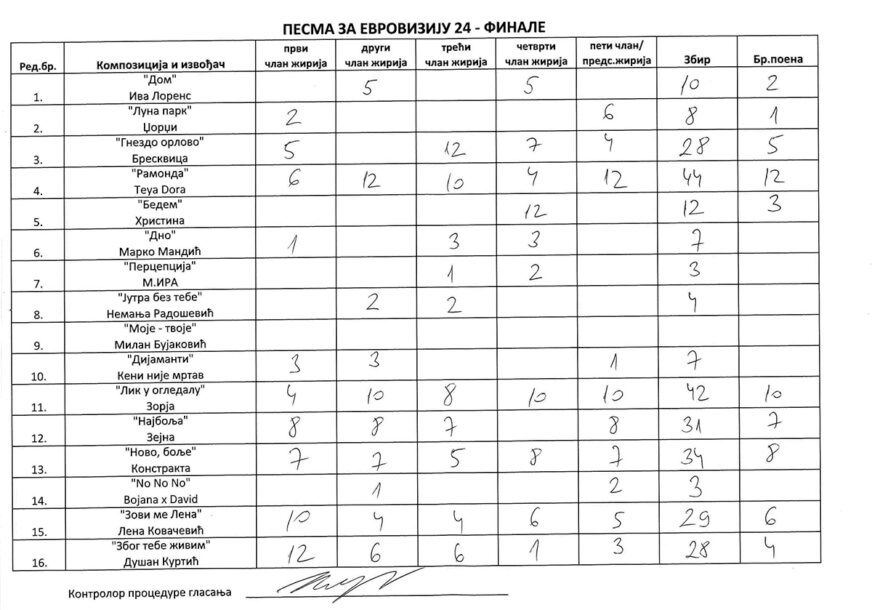 ПЕСМА ЗА ЕВРОВИЗИЈУ 24 - ФИНАЛЕ
Ред.бр. Композиција и извођач први члан жирија други члан жирија трећи члан жирија четврти члан жирија пети члан/ предс.жирија Збир Бр.поена
"Дом"
1. Ива Лоренс 5 5 10 2
"Луна парк"
2. Џорџи 2 6 8 1
"Гнездо орлово"
3. Бресквица 5 12 7 4 28 5
"Рамонда"
4. Teya Dora 6 12 10 4 12 44 12
"Бедем"
5. Христина 12 12 3
"Дно"
6. Марко Мандић 1 3 3 7
"Перцепција"
7. М.ИРА 1 2 3
"Јутра без тебе"
8. Немања Радошевић 2 2 4
"Моје - твоје"
9. Милан Бујаковић
"Дијаманти"
10. Кени није мртав 3 3 1 7
"Лик у огледалу"
11. Зорја 4 10 8 10 10 42 10
"Најбоља"
12. Зејна 8 8 7 8 31 7
"Ново, боље"
13. Констракта 7 7 5 8 7 34 8
"No No No"
14. Bojana x David 1 2 3
"Зови ме Лена"
15. Лена Ковачевић 10 4 4 6 5 29 6
"Због тебе живим"
16. Душан Куртић 12 6 6 1 3 28 4
Контролор процедуре гласања